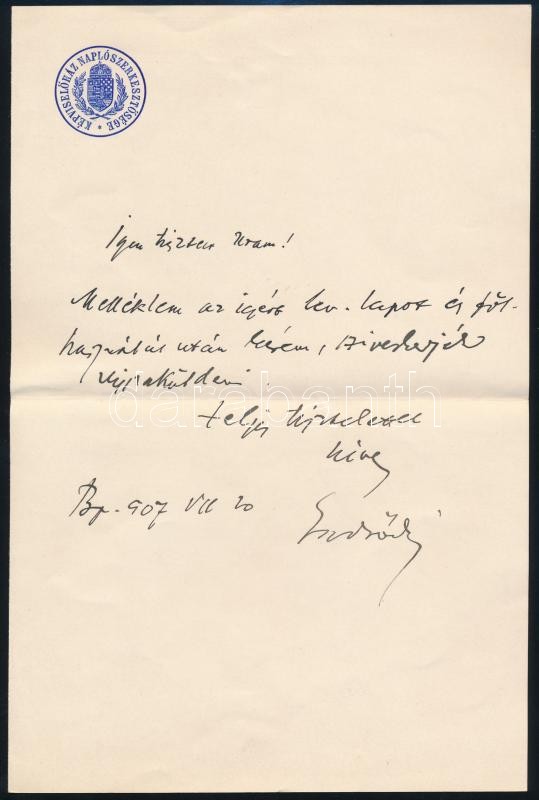 KÉPVISELŐHÁZ NAPLÓSZERKESZTŐSÉGE *
Igen tisztelt Uram!
Mellékelem az igért lev. lapot és föl-
használás után kérem, sziveskedjék
visszaküldeni.
Teljes tisztelettel
hive
Bp. 907 VII 20
Endrődi
darabanth